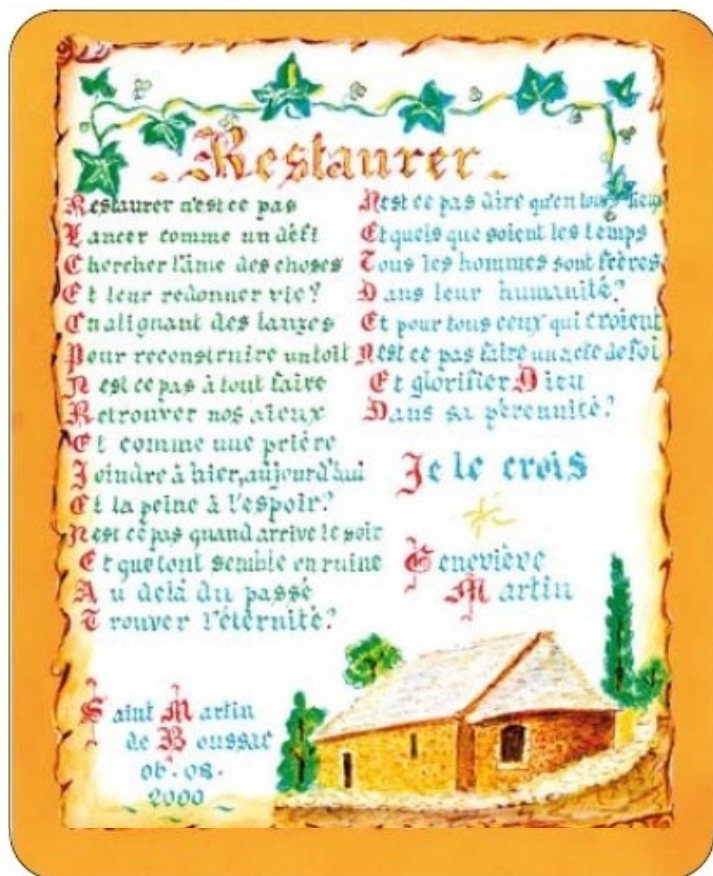 Restaurer
Restaurer n'est ce pas
Lancer comme un défi
Chercher l'âme des choses
Et leur redonner vie?
En alignant des lauzes
Pour reconstruire un toit
N'est ce pas à tout faire
Retrouver nos aïeux
Et comme une prière
Joindre à hier, aujourd'hui
Et la peine à l'espoir?
N'est ce pas quand arrive le soir
Et que tout semble en ruine
Au delà du passé
Trouver l'éternité?
N'est ce pas dire qu'en tous lieux
Et quels que soient les temps
Tous les hommes sont frères
Dans leur humanité?
Et pour tous ceux qui croient
N'est ce pas faire un acte de foi
Et glorifier Dieu
Dans sa pérennité?
Je le crois
Geneviève
Martin
Saint Martin
de Boussac
06.08.
2000